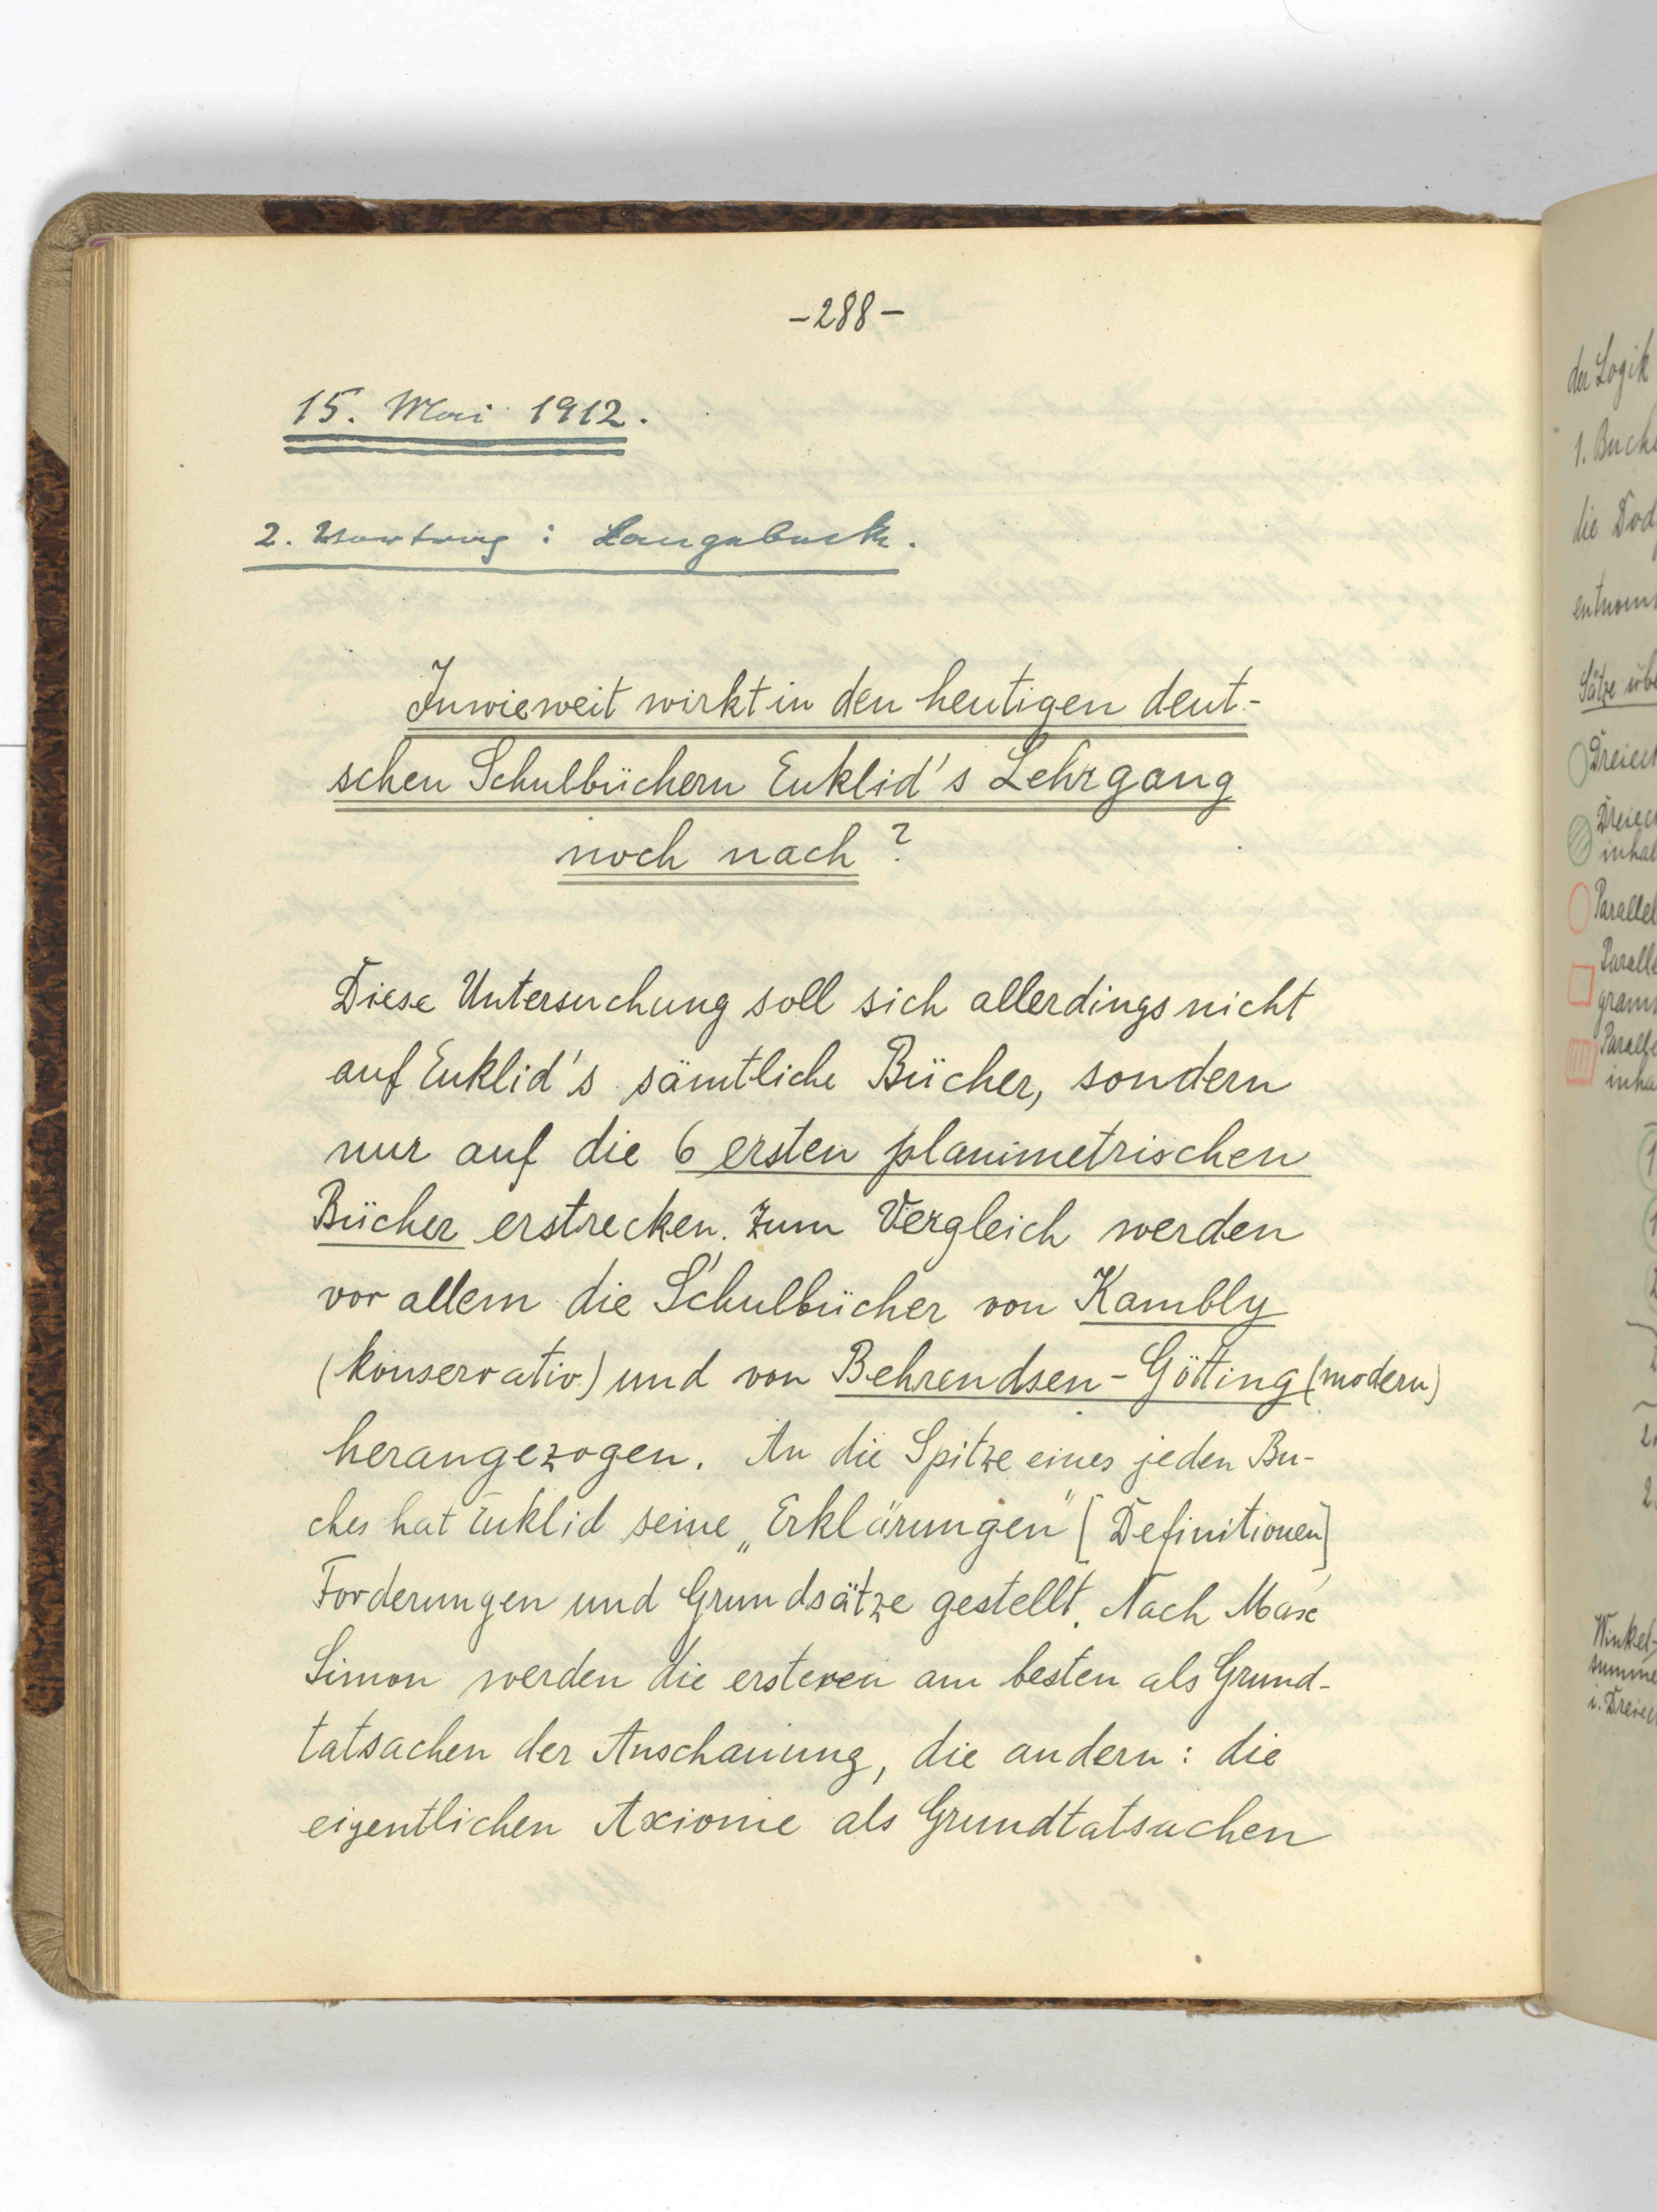 -288-
15. Mai 1912.
2. Vortrag: Langebeck.
Inwieweit wirkt in den heutigen deut-
schen Schulbüchern Euklid's Lehrgang
noch nach?
Diese Untersuchung soll sich allerdings nicht
auf Euklid's sämtliche Bücher, sondern
nur auf die 6 ersten planimetrischen
Bücher erstrecken. Zum Vergleich werden
vor allem die Schulbücher von Kambly
(konservativ) und von Behrendsen-Götting (modern)
herangezogen. An die Spitze eines jeden Bu-
ches hat Euklid seine „Erklärungen" [Definitionen]
Forderungen und Grundsätze gestellt. Nach Max
Simon werden die ersteren am besten als Grund-
tatsachen der Anschauung, die andern: die
eigentlichen Axiome als Grundtatsachen
der Logik
1. Buch
die
Sätze
Dreieck
inhal
Parallel
gram
inha
Winkel-
summe
i. Dreiec